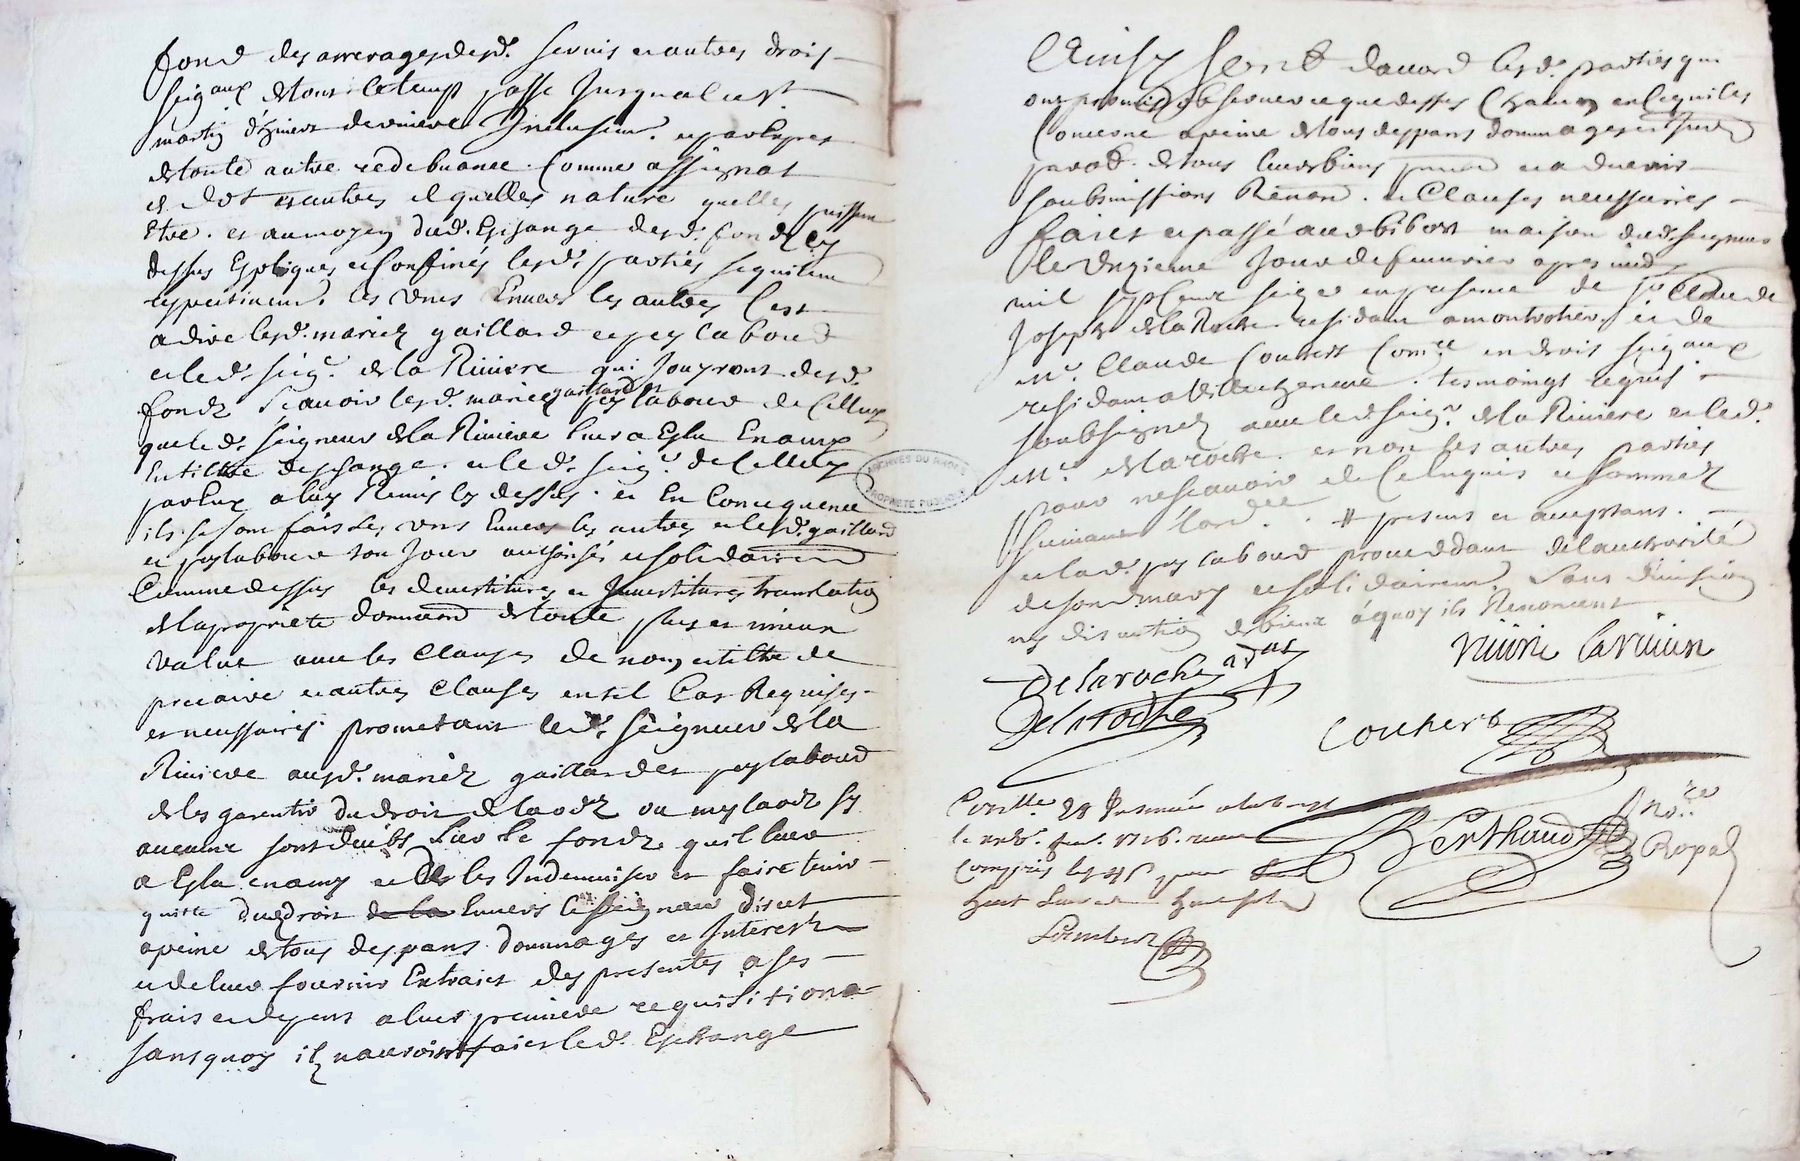 fond des arrerages desd. servis et autres drois
seigaux de tout le temp passe jusqua la st
martin d'hiver derniere Inclusivt. et par exprès
de toute autre redebuance. comme assignat
et dot et autres et quelles nature quelles puissent
etre. et au moyen dud. Eschange desd. fondz cy
dessus Expliques et confinés lesd. parties sequitent
respectivemt. les unes Envers les autres C'est
a dire lesd. mariez gaillard et peylaboud
et le d. seigr. de la Riviere qui jouyront desd.
fondz scavoir lesd. mariez gaillard et peylaboud de celluy
que le d. seigneur de la Riviere leur a
En tiltre deschange. et le d. seigr. de celluy
par eux a luy Remis cy dessus. et En consequence
ils se sont fais les uns Envers les autres et lesd. gaillard
et peylaboud son Jour authorisée et solidairemt
Comme dessus les devestitures et Investitures translation
de la proprieté dommaine de toute plus et mieux
value avec les clauses de nom et tiltre de
precaire et autres clauses en tel cas Requises
et necessaires prometant le d. seigneur de la
Riviere ausd. mariéz gaillard et peylaboud
de les garentir du droit de laodz ou mylaodz sy
aucuns sont deubs sur le fondz quil leur
a et de les Indemniser et faire tenir
quitte dud droit de la Envers le seigneur direct
a peine de tous despans dommages et Interestz
et de leur fournir Extraict des presentes a ses
frais et depens a leur premiere requisition
sans quoy ilz nauroint faict le d. Eschange
Ainsy sont d'accord lesd. parties qui
ont promis observer ce que dessus Chacun en ce qui les
Concerne a peine de tous despans dommages et
par obt. de tous leurs biens
soubmissions Renon. et Clauses necessaires
faict et passé au maison dud. seigneur
le unzieme Jour de fevrier apres midy
mil sept cent seize en presence de sr. Claude
Joseph de la Roche residant a montrotier et de
Mr. Claude Couhert Comre. en droit seigaux
residant tesmoings requis
soubsignez avec le d. seigr. de la Riviere et le d.
Mr. de la roche. et non les autres parties
pour ne scavoir de ce enquis et sommez
suivant l'ordce. # presens et acceptans.
et la d. peylaboud procedant de l'authorité
de son d mary et solidairemt. sans division
ny discution de bien a quoy ils Renoncent
Delaroche
Delaroche
Couhert
Conlle.
le fev. 1716. receu
compris les
huict sols
Lambert
Berthaud
Nore.
Royal
ARCHIVES DU RHONE
PROPRIETE PUBLIQUE